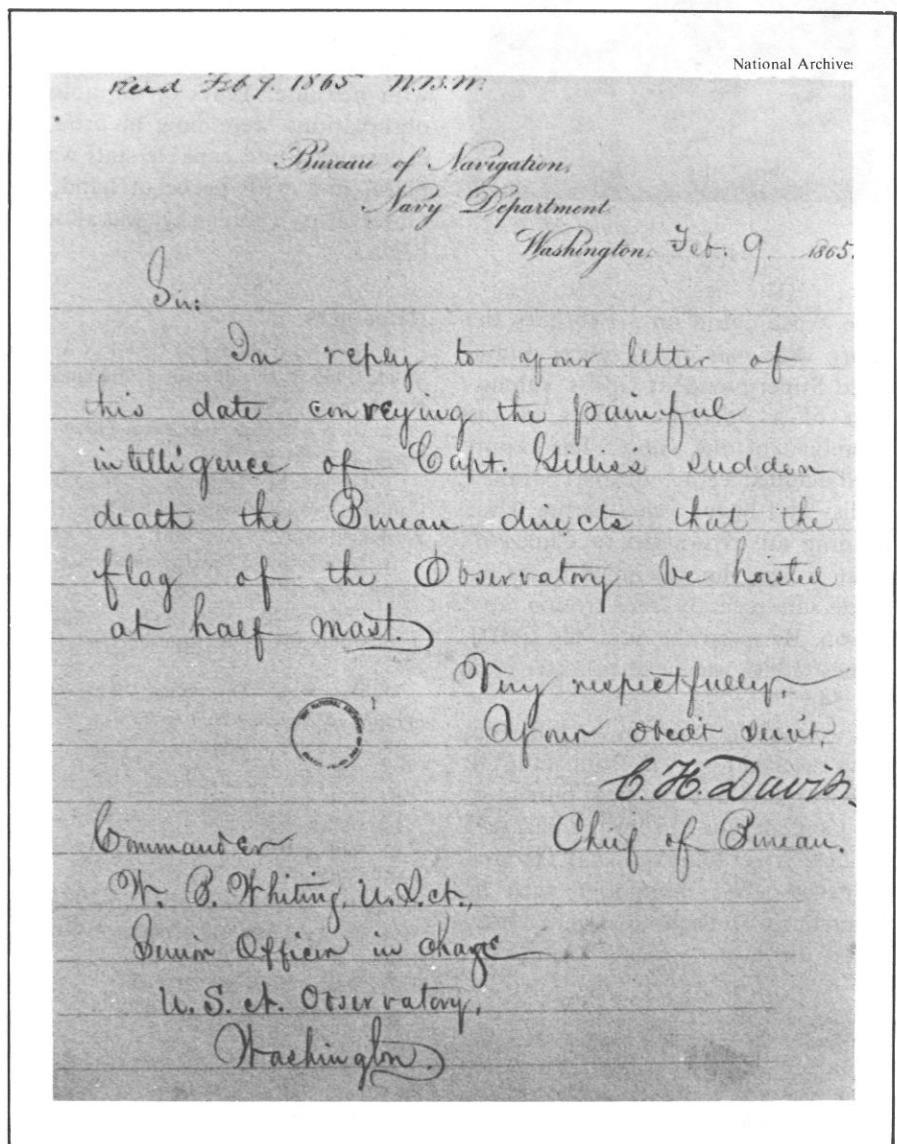 National Archives
Recd Feb 9. 1865 W.B.W.
Bureau of Navigation,
Navy Department
Washington, Feb. 9. 1865.
Sir:
In reply to your letter of
this date conveying the painful
intelligence of Capt. Gilliss's sudden
death the Bureau directs that the
flag of the Observatory be hoisted
at half mast.
Very respectfully,
Your obedt servt.
C. H. Davis.
Chief of Bureau.
Commander
W. B. Whiting, U.S.N.,
Senior Officer in charge
U.S.N. Observatory,
Washington.